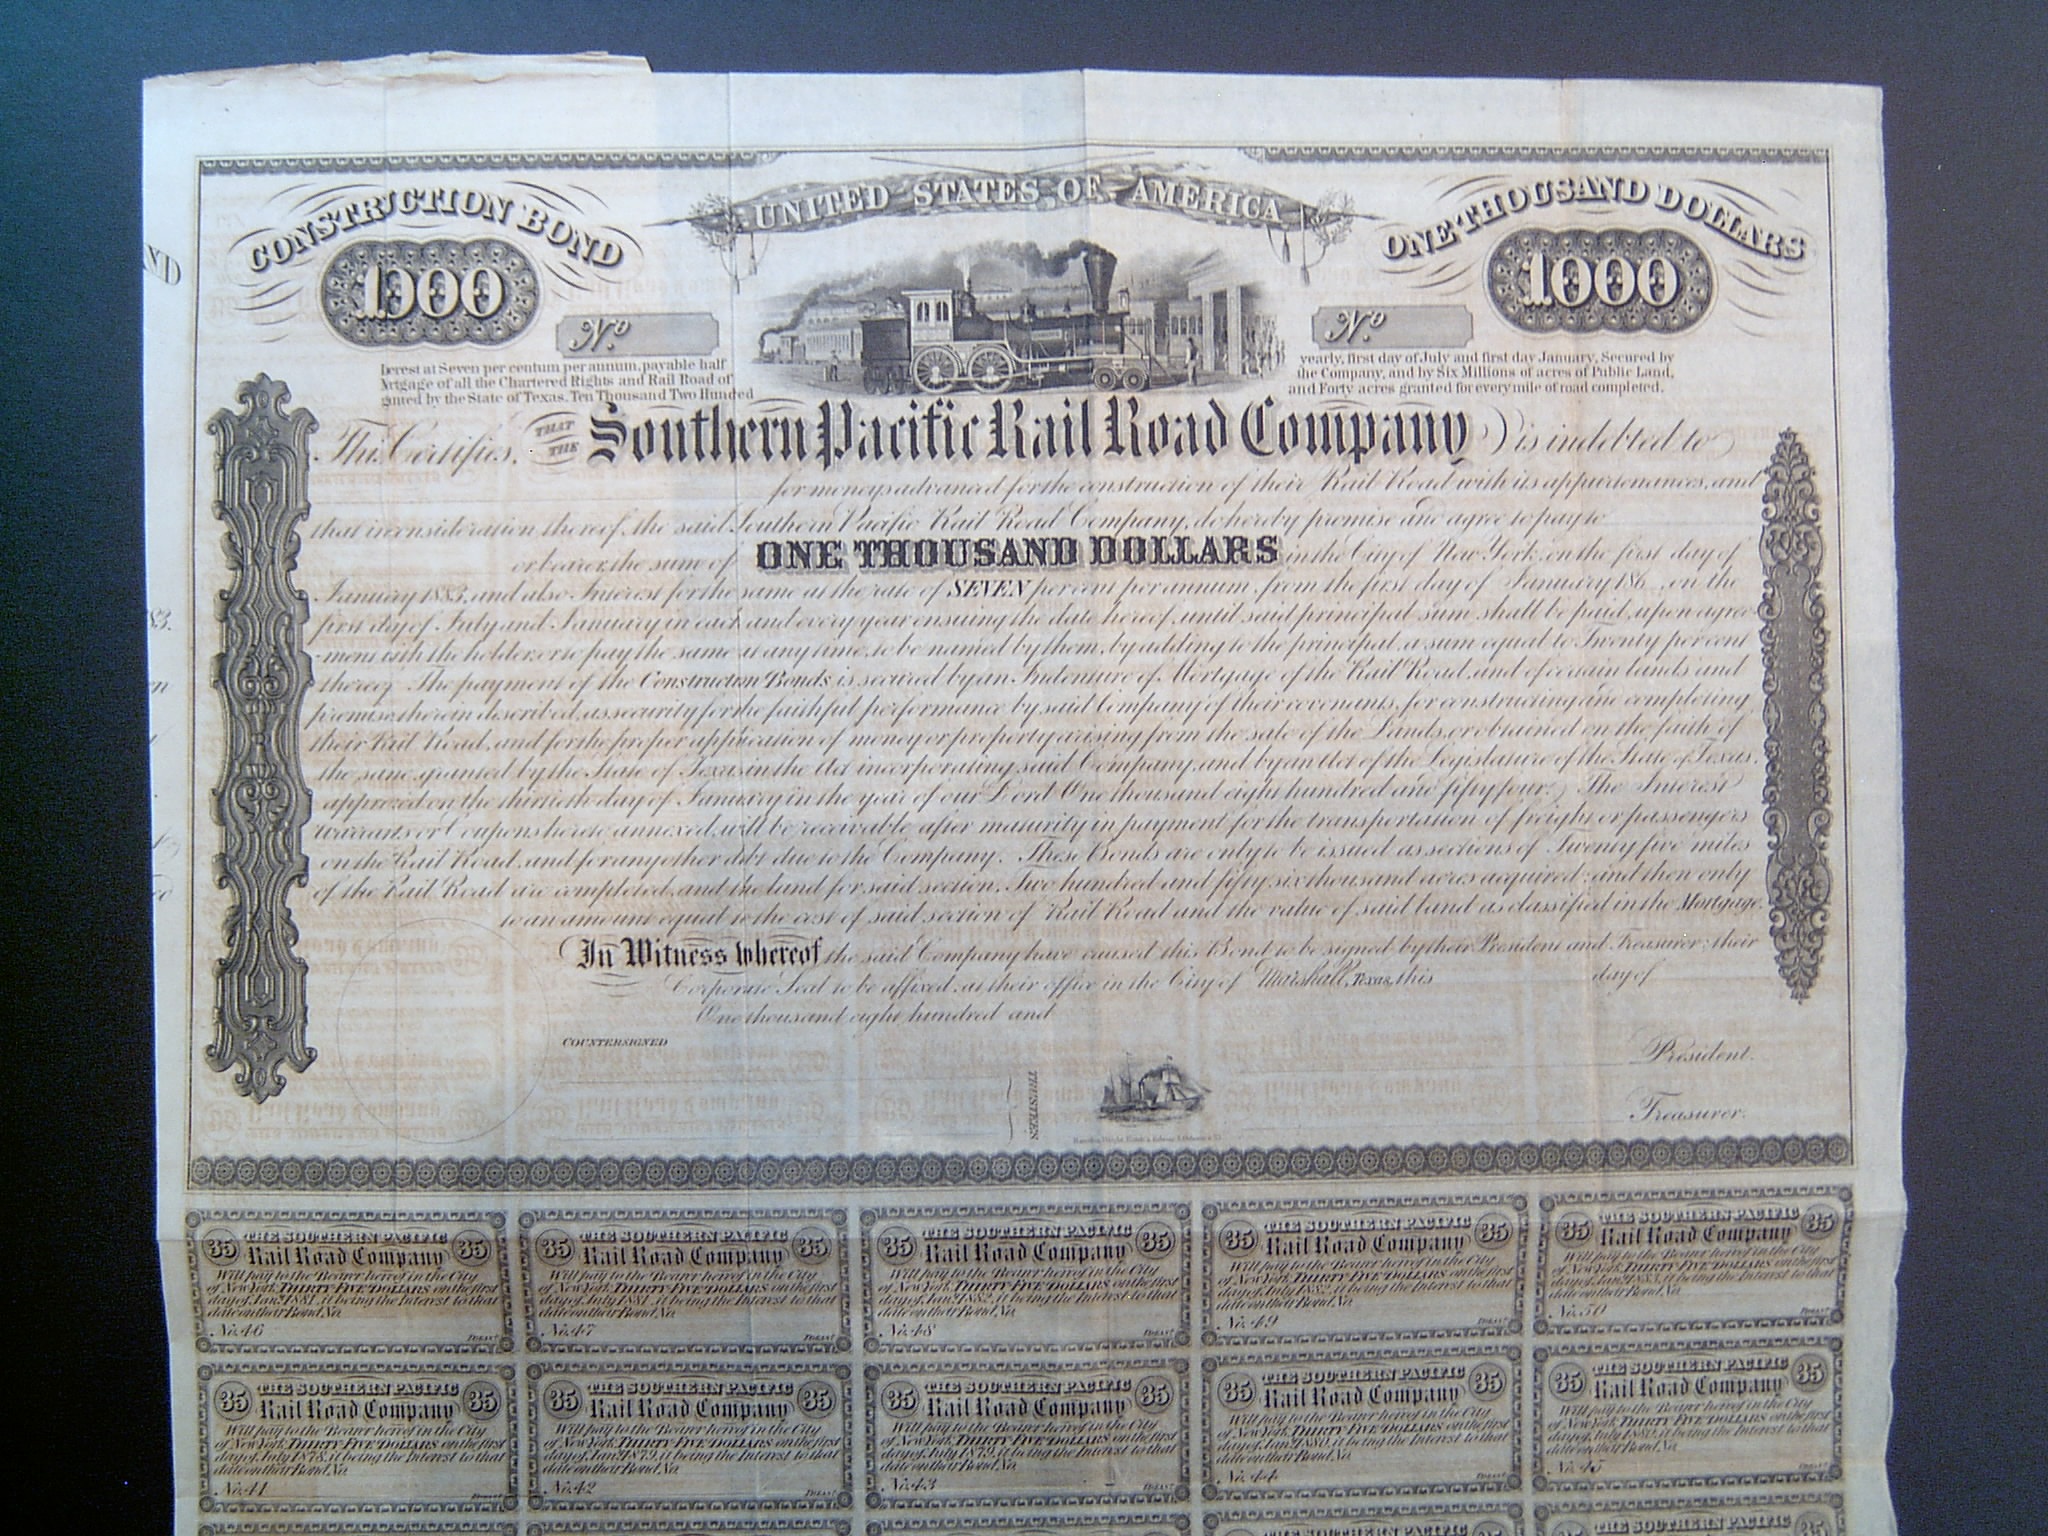 UNITED STATES OF AMERICA
CONSTRUCTION BOND
ONE THOUSAND DOLLARS
ND
1000
1000
No.
No.
Interest at Seven per centum per annum, payable half
yearly, first day of July and first day January, Secured by
Mortgage of all the Chartered Rights and Rail Road of
the Company, and by Six Millions of acres of Public Land,
granted by the State of Texas. Ten Thousand Two Hundred
and Forty acres granted for every mile of road completed.
This Certifies, THAT THE Southern Pacific Rail Road Company is indebted to
for moneys advanced for the construction of their Rail Road with its appurtenances, and
that in consideration thereof, the said Southern Pacific Rail Road Company, do hereby promise and agree to pay to
or bearer, the sum of ONE THOUSAND DOLLARS in the City of New York, on the first day of
January 1883, and also Interest for the same at the rate of SEVEN per cent per annum, from the first day of January 186 , on the
first day of July and January in each and every year ensuing the date hereof, until said principal sum shall be paid, upon agree
83.
-ment with the holder, or to pay the same at any time, to be named by them, by adding to the principal, a sum equal to Twenty per cent
thereof. The payment of the Construction Bonds is secured by an Indenture of Mortgage of the Rail Road, and of certain lands and
premises therein described, as security for the faithful performance by said Company of their covenants, for constructing and completing
their Rail Road, and for the proper application of money or property arising from the sale of the Lands, or obtained on the faith of
the same, granted by the State of Texas, in the Act incorporating said Company, and by an Act of the Legislature of the State of Texas,
approved on the thirtieth day of January in the year of our Lord One thousand eight hundred and fifty four. The Interest
warrants or Coupons hereto annexed, will be receivable after maturity in payment for the transportation of freight or passengers
on the Rail Road, and for any other debt due to the Company. These Bonds are only to be issued as sections of Twenty five miles
of the Rail Road are completed, and the land for said section, Two hundred and fifty six thousand acres acquired; and then only
to an amount equal to the cost of said section of Rail Road and the value of said land as classified in the Mortgage.
In Witness whereof the said Company have caused this Bond to be signed by their President and Treasurer; their
Corporate Seal to be affixed, at their office in the City of Marshall, Texas, this day of
One thousand eight hundred and
COUNTERSIGNED
President.
TRUSTEES
Treasurer.
35 THE SOUTHERN PACIFIC 35
Rail Road Company
Will pay to the Bearer hereof in the City
of New York, THIRTY FIVE DOLLARS on the first
day of Jany. 1881, it being the Interest to that
date on their Bond, No.
No. 46 TREAS'R
35 THE SOUTHERN PACIFIC 35
Rail Road Company
Will pay to the Bearer hereof in the City
of New York, THIRTY FIVE DOLLARS on the first
day of July 1881, it being the Interest to that
date on their Bond, No.
No. 47 TREAS'R
35 THE SOUTHERN PACIFIC 35
Rail Road Company
Will pay to the Bearer hereof in the City
of New York, THIRTY FIVE DOLLARS on the first
day of Jany. 1882, it being the Interest to that
date on their Bond, No.
No. 48 TREAS'R
35 THE SOUTHERN PACIFIC 35
Rail Road Company
Will pay to the Bearer hereof in the City
of New York, THIRTY FIVE DOLLARS on the first
day of July 1882, it being the Interest to that
date on their Bond, No.
No. 49 TREAS'R
35 THE SOUTHERN PACIFIC 35
Rail Road Company
Will pay to the Bearer hereof in the City
of New York, THIRTY FIVE DOLLARS on the first
day of Jany. 1883, it being the Interest to that
date on their Bond, No.
No. 50 TREAS'R
35 THE SOUTHERN PACIFIC 35
Rail Road Company
Will pay to the Bearer hereof in the City
of New York, THIRTY FIVE DOLLARS on the first
day of July 1878, it being the Interest to that
date on their Bond, No.
No. 41 TREAS'R
35 THE SOUTHERN PACIFIC 35
Rail Road Company
Will pay to the Bearer hereof in the City
of New York, THIRTY FIVE DOLLARS on the first
day of Jany. 1879, it being the Interest to that
date on their Bond, No.
No. 42 TREAS'R
35 THE SOUTHERN PACIFIC 35
Rail Road Company
Will pay to the Bearer hereof in the City
of New York, THIRTY FIVE DOLLARS on the first
day of July 1879, it being the Interest to that
date on their Bond, No.
No. 43 TREAS'R
35 THE SOUTHERN PACIFIC 35
Rail Road Company
Will pay to the Bearer hereof in the City
of New York, THIRTY FIVE DOLLARS on the first
day of Jany. 1880, it being the Interest to that
date on their Bond, No.
No. 44 TREAS'R
35 THE SOUTHERN PACIFIC 35
Rail Road Company
Will pay to the Bearer hereof in the City
of New York, THIRTY FIVE DOLLARS on the first
day of July 1880, it being the Interest to that
date on their Bond, No.
No. 45 TREAS'R
THE SOUTHERN PACIFIC
THE SOUTHERN PACIFIC
THE SOUTHERN PACIFIC
THE SOUTHERN PACIFIC
THE SOUTHERN PACIFIC